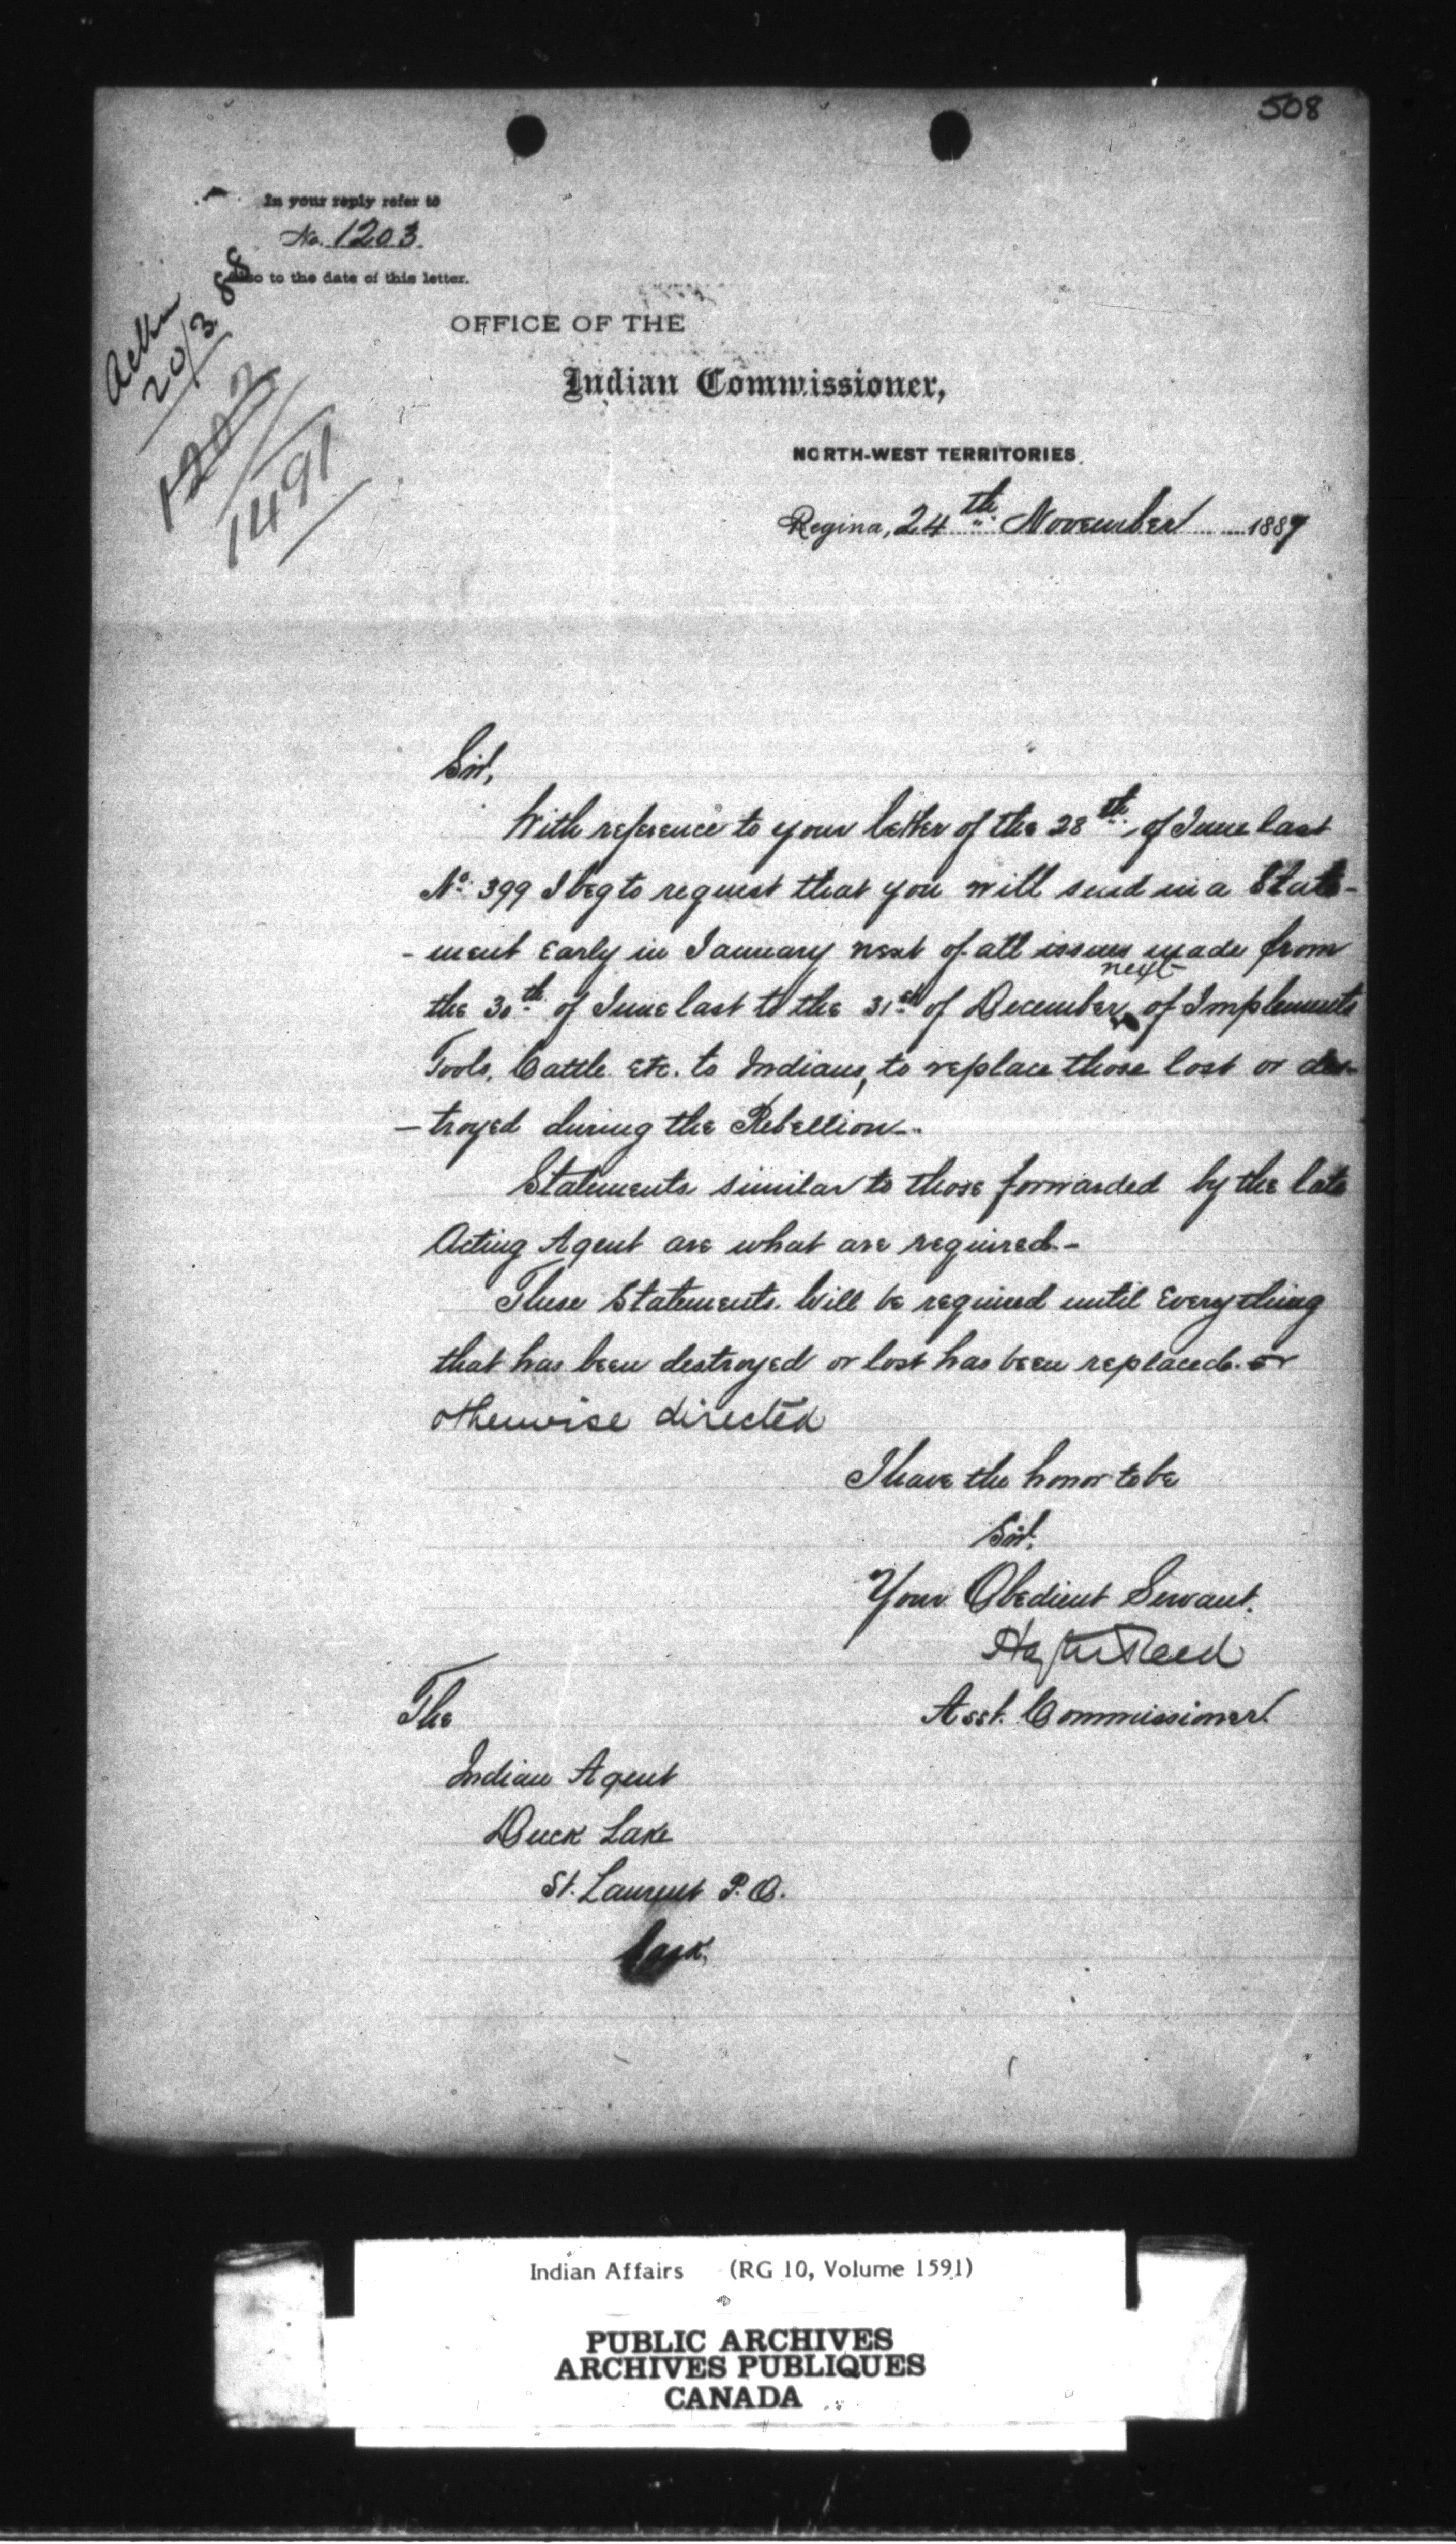 508
In your reply refer to
No. 1203
also to the date of this letter.
20/3 88
1202
1491
OFFICE OF THE
Indian Commissioner,
NORTH-WEST TERRITORIES.
Regina, 24th November 1887
Sir,
With reference to your letter of the 28th of June last
No. 399 I beg to request that you will send in a State-
-ment Early in January next of all issues made from
the 30th of June last to the 31st of December next of Implements
Tools, Cattle Etc. to Indians, to replace those lost or des-
-troyed during the Rebellion.
Statements similar to those forwarded by the late
Acting Agent are what are required.-
These Statements Will be required until Everything
that has been destroyed or lost has been replaced. or
otherwise directed
I have the honor to be
Sir,
Your Obedient Servant.
Hayter Reed
Asst. Commissioner.
The
Indian Agent
Duck Lake
St. Laurent P.O.
Sask.
Indian Affairs (RG 10, Volume 1591)
PUBLIC ARCHIVES
ARCHIVES PUBLIQUES
CANADA